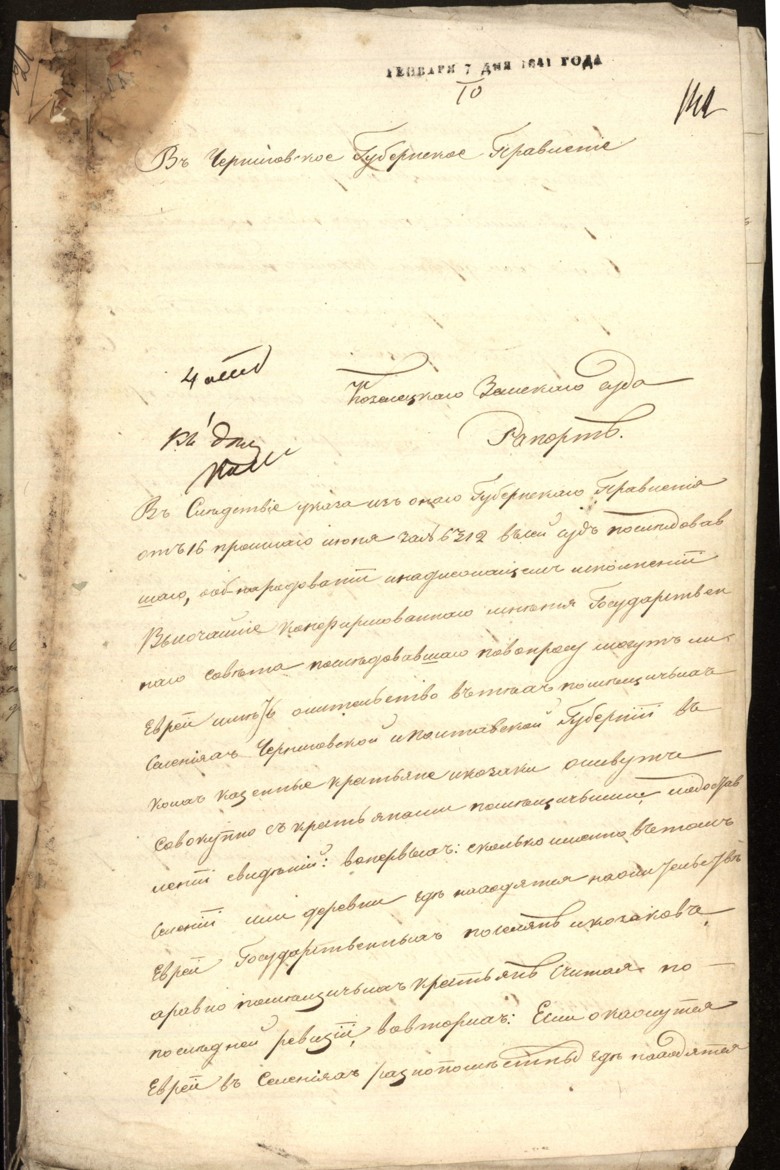 ГЕНВАРЯ 7 ДНЯ 1841 ГОДА
10
Въ Черниговское Губернское Правленіе
Козелецкаго Земскаго суда
Рапортъ.
Въ Следствіе указа изъ онаго Губернскаго Правленія
отъ 16 прошлаго июня за № въ сей судъ последовав
шаго, объ надлежащемъ исполненіи
Высочайше конфирмованнаго мненія Государствен
наго совета последовавшаго повопросу могутъ ли
Евреи иметь жительство въ техъ помещичьихъ
селеніяхъ Черниговской и Полтавской Губерній въ
коихъ казенные крестьяне и козаки живутъ
совокупно съ крестьянами помещичьими, и
леніи сведеній: вопервыхъ: сколько именно въ томъ
селеніи или деревни где находятся на жительстве
Евреи Государственныхъ поселянъ и козаковъ,
аравно помещичьихъ крестьянъ считая по
последней ревизіи, вовторыхъ: Если окажутся
Евреи въ селеніяхъ разнопоместныхъ где находятся